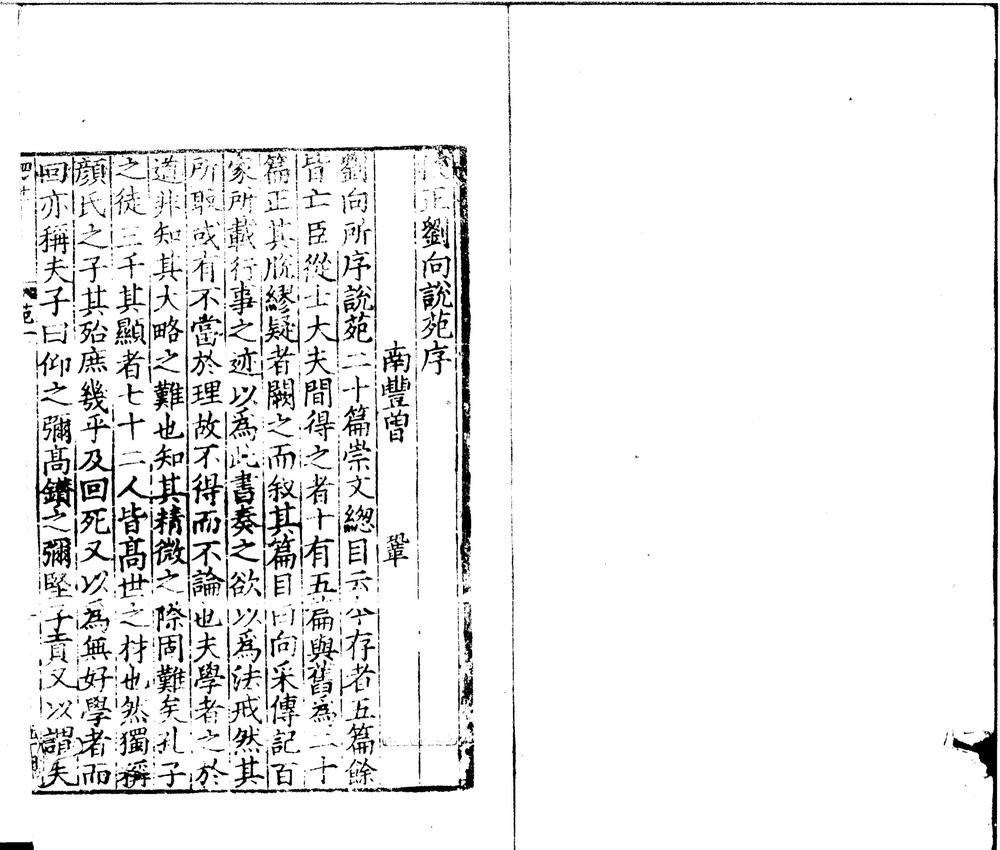 校正劉向說苑序
南豐曾　鞏
劉向所序說苑二十篇崇文總目云今存者五篇餘
皆亡臣從士大夫間得之者十有五篇與舊爲二十
篇正其脫繆疑者闕之而叙其篇目曰向采傳記百
家所載行事之迹以爲此書奏之欲以爲法戒然其
所取或有不當於理故不得而不論也夫學者之於
道非知其大略之難也知其精微之際固難矣孔子
之徒三千其顯者七十二人皆髙世之材也然獨稱
顔氏之子其殆庶幾乎及回死又以爲無好學者而
回亦稱夫子曰仰之彌髙鑽之彌堅子貢又以謂夫
苑一